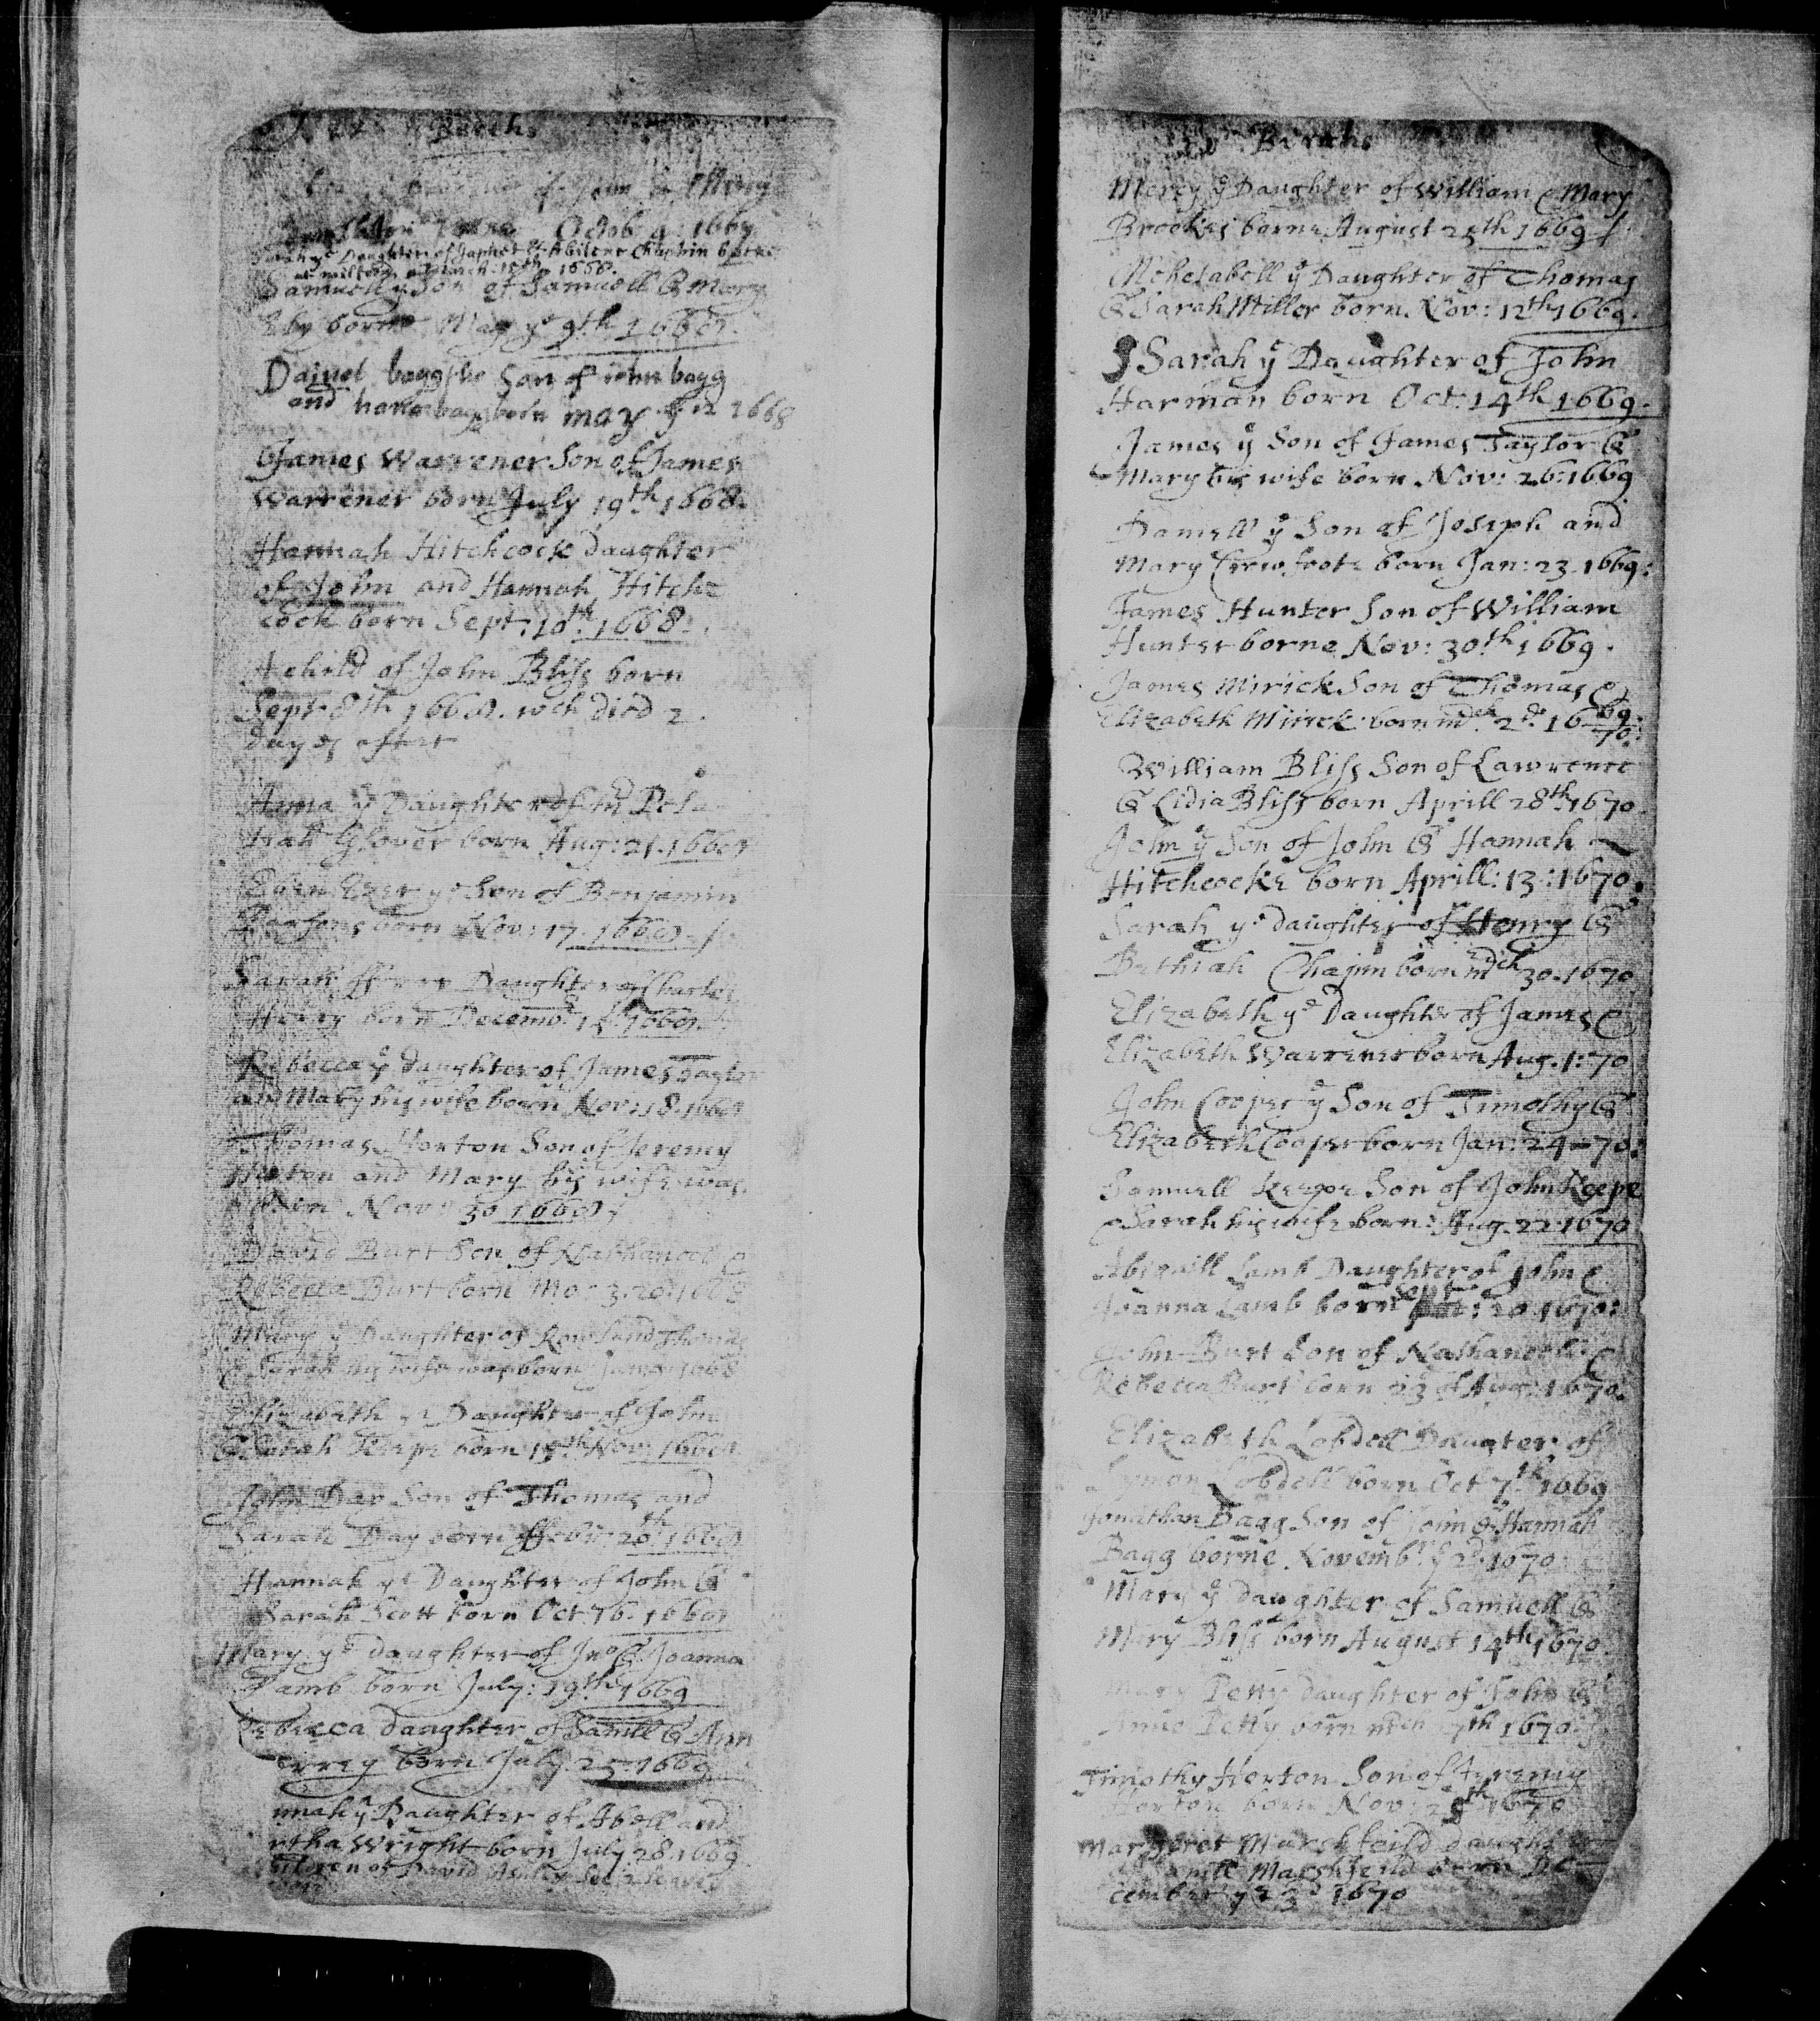 Births
of John & Mary
Octob 9: 1669
Sarah ye Daughter of Japhet & Abilene Chapin borne
at milford March 15th 1668.
Samuell ye Son of Samuell & Mary
Ely borne May ye 9th 1668.
Dainel bagg the Son of iohn bagg
and hana bagg born may ye 12 1668
James Warrener Son of James
Warrener born July 19th 1668.
Hannah Hitchcock daughter
of John and Hannah Hitch=
cock born Sept: 10th 1668.
A child of John Bliss born
Sept 8th 1668. wch died 2.
dayes after
Anna ye Daughter of mr Pela
tiah Glover born Aug: 21. 1668
Eben Ezer ye Son of Benjamin
Parsons born Nov: 17. 1668.
Sarah fferry Daughter of Charles
fferry born Decembr 1668.
Rebecca ye daughter of James Taylor
and Mary his wife born Nov: 18. 1668
Thomas Horton Son of Jeremy
Horton and Mary his wife was
born Nov: 30 1668
David Burt Son of Nathaneel &
Rebecca Burt born Mo: 3. 20: 1668
Mary ye Daughter of Rowland Thomas
& Sarah his wife was born 1668
Elizabeth ye Daughter of John
& Sarah Keepe born 15th Nov: 1668
John Day Son of Thomas and
Sarah Day born ffebr: 20th 1668
Hannah ye Daughter of John &
Sarah Scott born Oct: 16. 1668
Mary ye daughter of Jno & Joanna
Lamb born July: 19th 1669
Rebecca daughter of Samll & Ann
Terrey born July 25. 1669
nnah ye Daughter of Abell and
rtha Wright born July 28. 1669
hildren of David Ashley See 2 leaves
Births
Mercy ye Daughter of William & Mary
Brookes borne August 25th 1669
Mehetabell ye Daughter of Thomas
& Sarah Miller born Nov: 12th 1669.
Sarah ye Daughter of John
Harman born Oct: 14th 1669.
James ye Son of James Taylor &
Mary his wife born Nov: 26: 1669
Daniell ye Son of Joseph and
Mary Crowfoote born Jan: 23. 1669:
James Hunter Son of William
Hunter borne Nov: 30th 1669.
James Mirick Son of Thomas &
Elizabeth Mirick born mch 2d. 1669/70:
William Bliss Son of Lawrence
& Lidia Bliss born Aprill 28th 1670
John ye Son of John & Hannah
Hitchcocke born Aprill: 13: 1670.
Sarah ye daughter of Henry &
Bethiah Chapin born mch 30. 1670
Elizabeth ye Daughter of James &
Elizabeth Warrener born Aug. 1: 70
John Cooper ye Son of Timothy &
Elizabeth Cooper born Jan: 24 = 70:
Samuell Keepe Son of John Keepe
& Sarah his wife born: Aug. 22: 1670
Abigaill Lamb Daughter of John &
Joanna Lamb born Sept: 20. 1670:
John Burt Son of Nathaneell &
Rebecca Burt born 23 of Aug: 1670.
Elizabeth Lobdell Daugter of
Symon Lobdell born Oct 7th 1669
Jonathan Bagg Son of John & Hannah
Bagg borne Novembr ye 2d. 1670
Mary ye daughter of Samuell &
Mary Bliss born August 14th 1670
Mary Petty daughter of John &
Anne Petty born mch 7th 1670
Timothy Horton Son of Jeremy
Horton born Nov: 29th 1670
Margeret Marshfeild daughter
Samll Marshfeild born De=
cember ye 3d 1670